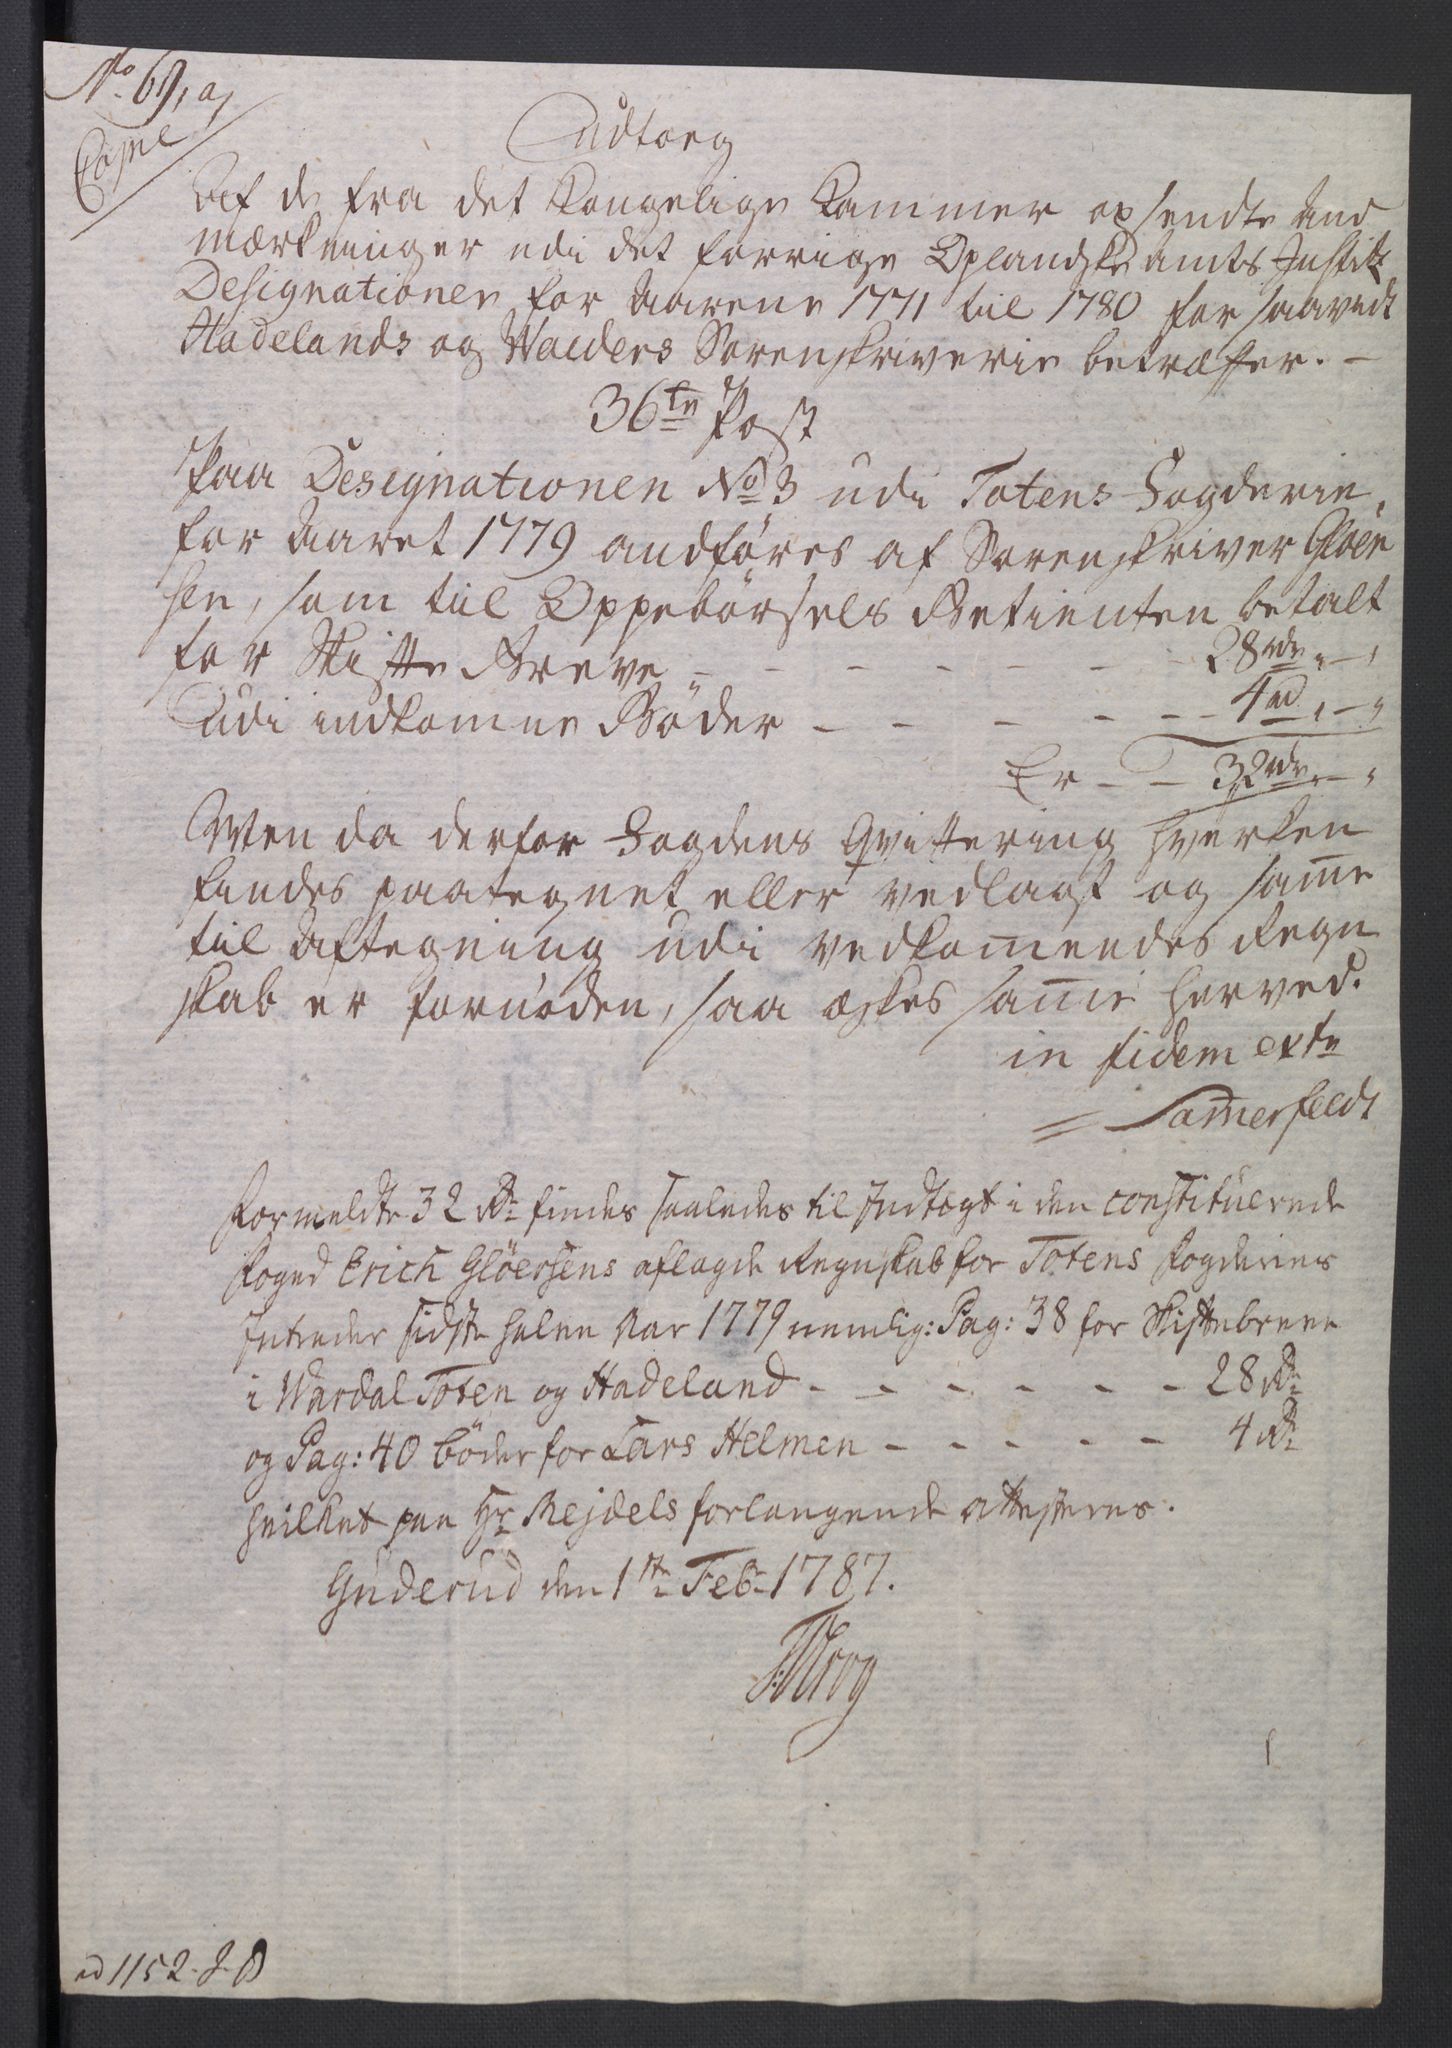 No 69, a,
Copie
Udtoeg
Af de fra det Kongelige Kammer opsendte And
mærkninger udi det forrige Oplandske Amts Justitz
Designationer for Aarene 1771 til 1780 for saavidt
Hadelands og Walders Sorenskriverie betræffer. –
36te Post
Paa Designationen No 3 udi Totens Fogderie,
for Aaret 1779 andføres af Sorenskriver Gløer
sen, som til Oppebörsels Betienten betalt
for Skifte Breve - - - - - - 28 rdr „ – „
Udi indkomne Böder - - - - - 4 rd „ – „
Er - - 32 rdr „ – „
Men da derfor Fogdens Qvittering hverken
findes paategnet eller vedlagt og sam̅e
til Aftegning udi vedkom̅endes Regn
skab er fornöden, saa æskes sam̅e herved.
in fidem extr
= Som̅erfeldt
Formeldte 32 Rd findes saaledes til Indtægt i den constituerede
Foged Erich Glöersens aflagde Regnskab for Totens Fogderies
Intrader sidste halve Aar 1779 nemlig: Pag: 38 for Skiftebreve
i Wardal Toten og Hadeland - - - - - - 28 Rd
og Pag: 40 böder for Lars Helmen - - - - - 4 Rd
hvilket paa Hr Mejdels forlangende attesteres.
Guderud den 1ste Febr 1787.
ad 1152. J. B